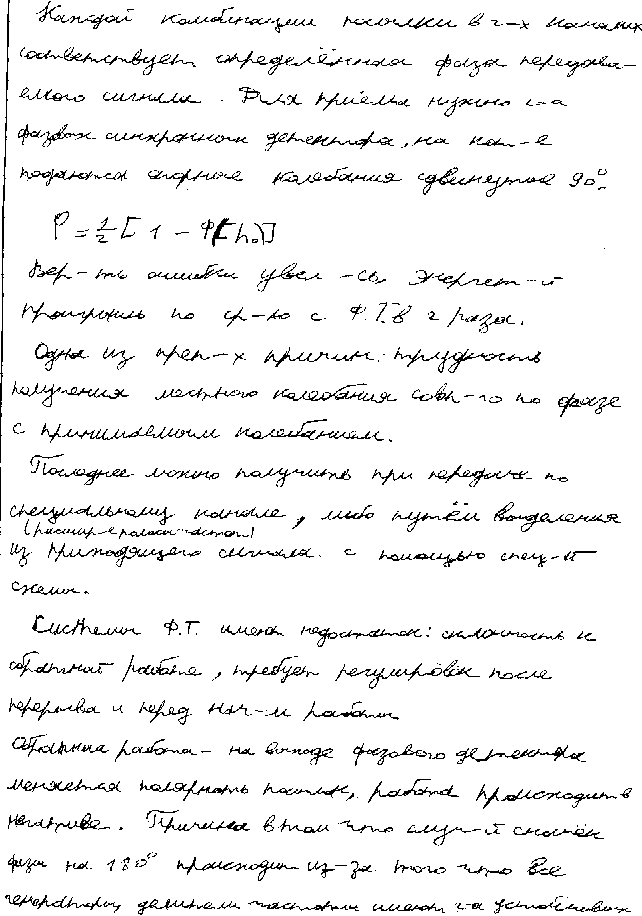 Каждой комбинации посылки в 2-х каналах
соответствует определённая фаза передава-
емого сигнала. Для приёма нужно 2-а
фазовых синхронных детектора, на кот-е
подаются опорные колебания сдвинутые 90°.
P = 1/2 [1 - Ф[h₀]]
Вер-ть ошибки увел-сь энергет-й
проигрыш по ср-ю с Ф.Т. в 2 раза.
Одна из преп-х причин: трудность
получения местного колебания совп-го по фазе
с принимаемым колебанием.
Последнее можно получить при передаче по
специальному каналу, либо путём выделения
(расшир-е полосы частот)
из приходящего сигнала с помощью спец-й
схемы.
Системы Ф.Т. имеют недостаток: склонность к
обратной работе, требует регулировок после
перерыва и перед нач-м работы
Обратная работа - на выходе фазового детектора
меняется полярность посылок, работа происходит в
негативе. Причина в том что случ-й скачёк
фазы на 180° происходит из-за того что все
генераторы, делители частоты имеют 2-а устойчивых